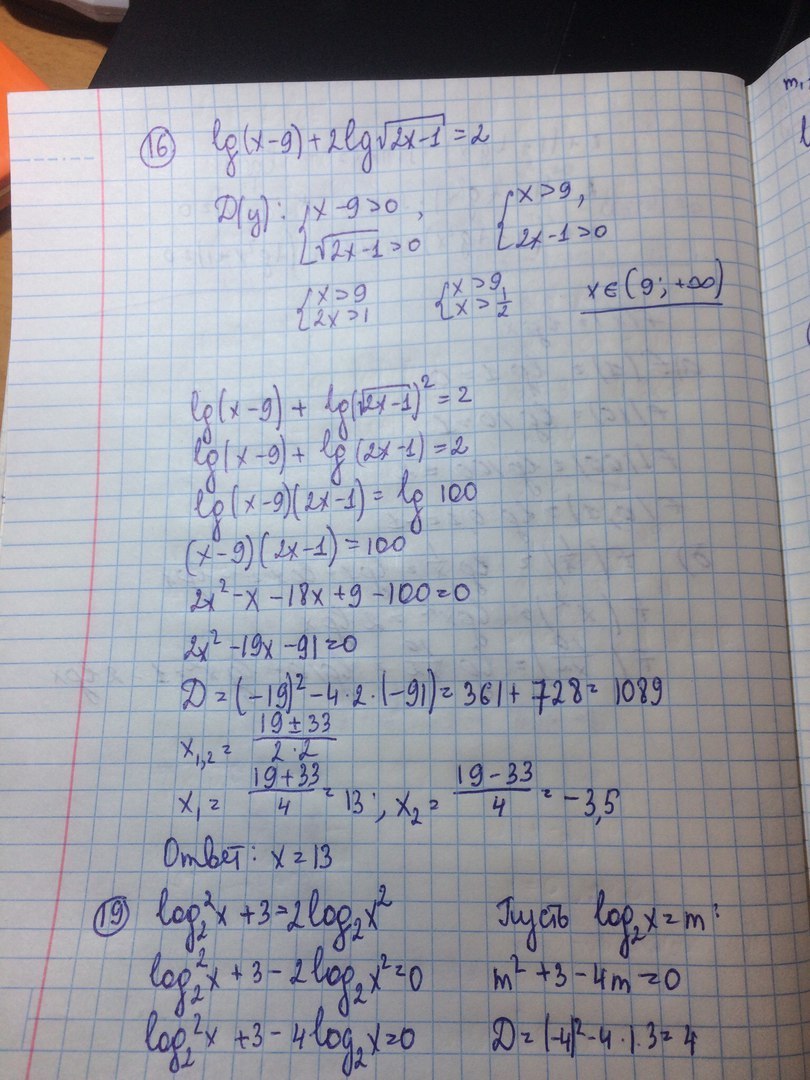 16 lg(x-9)+2lg√(2x-1)=2
D(y): {x-9>0, √(2x-1)>0 {x>9, 2x-1>0
{x>9 2x>1 {x>9, x>1/2 x∈(9; +∞)
lg(x-9)+ lg(√(2x-1))²=2
lg(x-9)+ lg(2x-1)=2
lg(x-9)(2x-1)= lg 100
(x-9)(2x-1)=100
2x²-x-18x+9-100=0
2x²-19x-91=0
D=(-19)²-4·2·(-91)=361+728=1089
x₁,₂= (19±33)/(2·2)
x₁= (19+33)/4 = 13; x₂= (19-33)/4 = -3,5
Ответ: x=13
19 log₂²x+3=2log₂x² Пусть log₂x=m:
log₂²x+3-2log₂x²=0 m²+3-4m=0
log₂²x+3-4log₂x=0 D=(-4)²-4·1·3=4